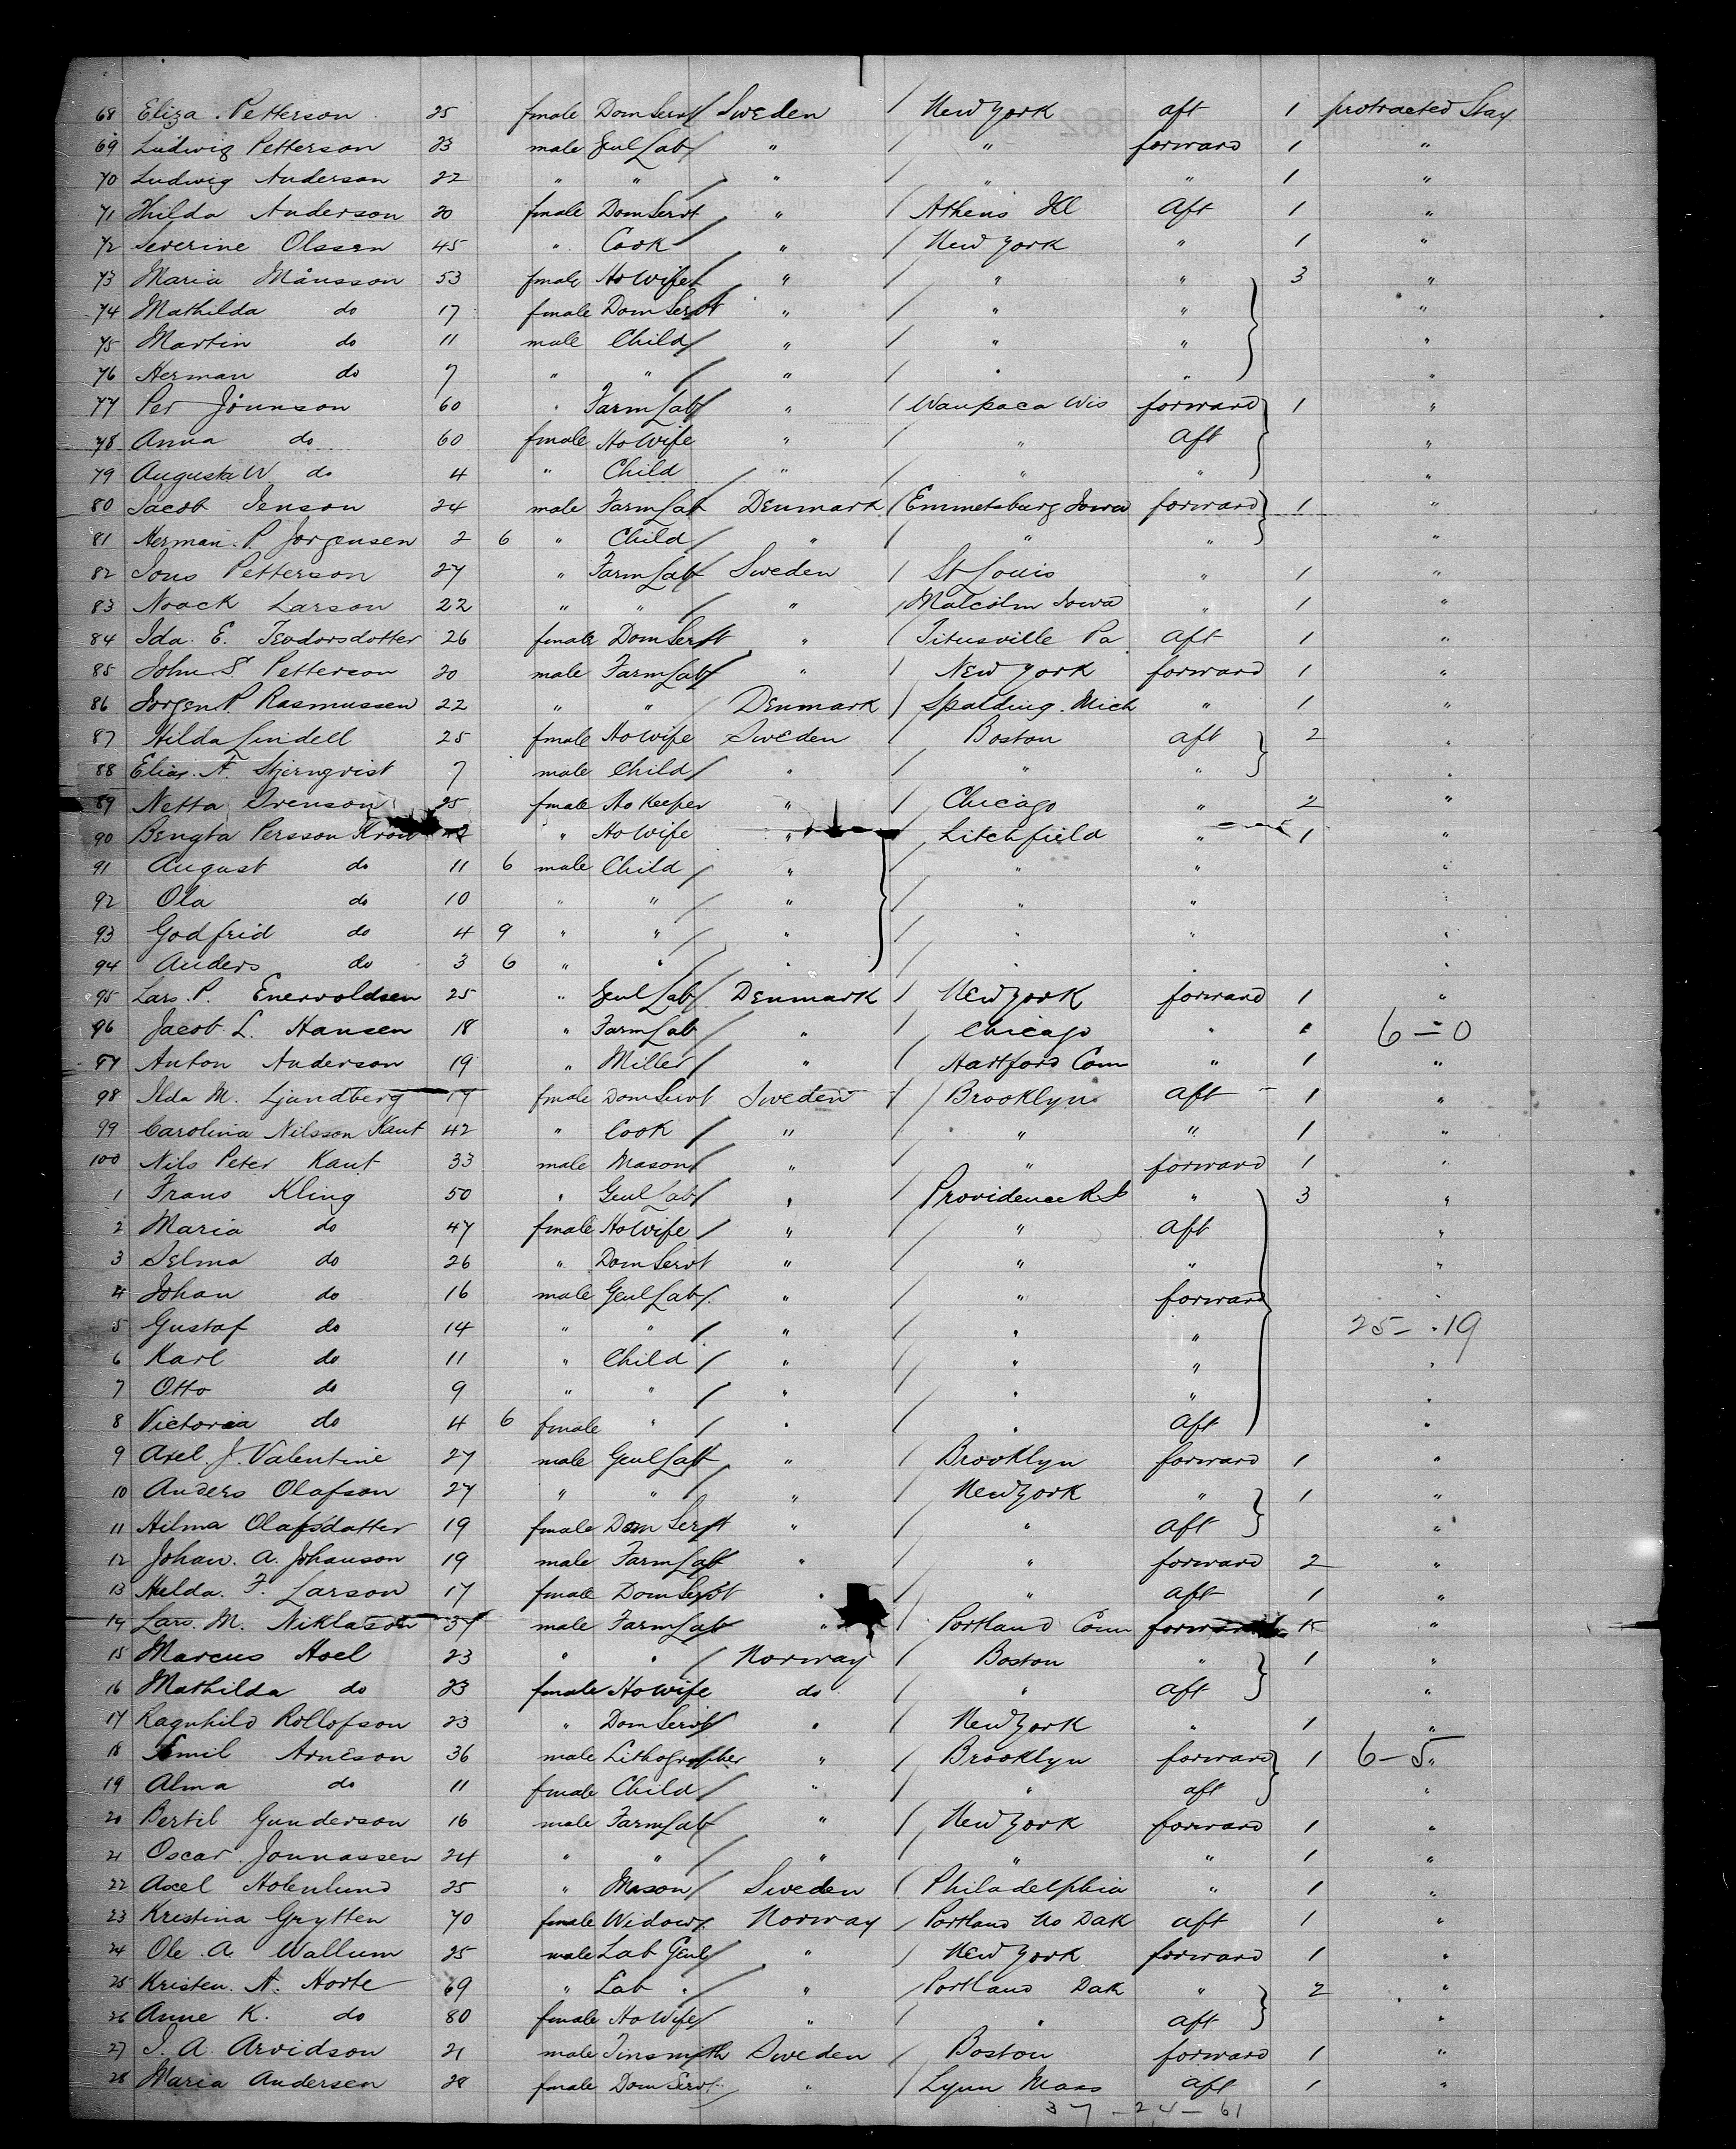 68 Eliza Petterson 25 fmale Dom Servt Sweden New York aft 1 protracted Stay
69 Ludwig Petterson 23 male Genl Lab " " forward 1 "
70 Ludwig Anderson 22 " " " " " 1 "
71 Hilda Anderson 20 fmale Dom Servt " Athens Ill Aft 1 "
72 Severine Olssen 45 " Cook " New York " 1 "
73 Maria Månsson 53 fmale Ho Wife " " " 3 "
74 Mathilda do 17 fmale Dom Servt " " " "
75 Martin do 11 male Child " " " "
76 Herman do 7 " " " " " "
77 Per Jönnson 60 " Farm Lab " Waupaca Wis forward 1 "
78 Anna do 60 fmale Ho Wife " " aft "
79 Augusta W do 4 " Child " " " "
80 Jacob Jenson 24 male Farm Lab Denmark Emmetsburg Iowa forward 1 "
81 Herman P. Jorgensen 2 6 " Child " " " "
82 Jons Petterson 27 " Farm Lab Sweden St Louis " 1 "
83 Noack Larson 22 " " " Malcolm Iowa " 1 "
84 Ida E. Teodorsdotter 26 fmale Dom Servt " Titusville Pa aft 1 "
85 John S Petterson 20 male Farm Lab " New York forward 1 "
86 Jorgen P. Rasmussen 22 " " Denmark Spalding Mich " 1 "
87 Hilda Lindell 25 fmale Ho Wife Sweden Boston aft 2 "
88 Elias F. Stjernqvist 7 male Child " " " "
89 Netta Svenson 25 fmale Ho Keeper " Chicago " 2 "
90 Bengta Persson " Ho Wife " Litchfield " 1 "
91 August do 11 6 male Child " " " "
92 Ola do 10 " " " " " "
93 Godfrid do 4 9 " " " " " "
94 Anders do 3 6 " " " " " "
95 Lars P. Enevoldsen 25 " Genl Lab Denmark New York forward 1 "
96 Jacob L. Hansen 18 " Farm Lab " Chicago " 1 6 — 0
97 Anton Anderson 19 " Miller " Hartford Conn " 1 "
98 Ilda M. Ljundberg 19 fmale Dom Servt Sweden Brooklyn aft 1 "
99 Carolina Nilsson Kant 42 " Cook " " " 1 "
100 Nils Peter Kant 33 male Mason " " forward 1 "
1 Frans Kling 50 " Genl Lab " Providence R I " 3 "
2 Maria do 47 fmale Ho Wife " " aft "
3 Selma do 26 " Dom Servt " " " "
4 Johan do 16 male Genl Lab " " forward "
5 Gustaf do 14 " " " " " 25 — 19
6 Karl do 11 " Child " " " "
7 Otto do 9 " " " " " "
8 Victoria do 4 6 fmale " " " aft "
9 Axel J. Valentine 27 male Genl Lab " Brooklyn forward 1 "
10 Anders Olafson 27 " " " New York " 1 "
11 Hilma Olafsdatter 19 fmale Dom Servt " " aft "
12 Johan A. Johanson 19 male Farm Lab " " forward 2 "
13 Hulda F. Larson 17 fmale Dom Servt " " aft 1 "
14 Lars M. Niklason 37 male Farm Lab " Portland Conn forward "
15 Marcus Hoel 23 " " Norway Boston " 1 "
16 Mathilda do 23 fmale Ho Wife do " aft "
17 Ragnhild Rollofson 23 " Dom Servt " New York " 1 "
18 Emil Arneson 36 male Lithographer " Brooklyn forward 1 6 — 5 "
19 Alma do 11 fmale Child " " aft "
20 Bertil Gunderson 16 male Farm Lab " New York forward 1 "
21 Oscar Jonnassen 24 " " " " " 1 "
22 Axel Holenlund 25 " Mason Sweden Philadelphia " 1 "
23 Kristina Grytten 70 fmale Widow Norway Portland No Dak aft 1 "
24 Ole A. Wallum 25 male Lab Genl " New York forward 1 "
25 Kristen A. Horte 69 " Lab " " Portland Dak " 2 "
26 Anne K. do 80 fmale Ho Wife " " aft "
27 J. A. Arvidson 21 male Tinsmith Sweden Boston forward 1 "
28 Maria Andersen 28 fmale Dom Servt " Lynn Mass aft 1 "
37 — 24 — 61